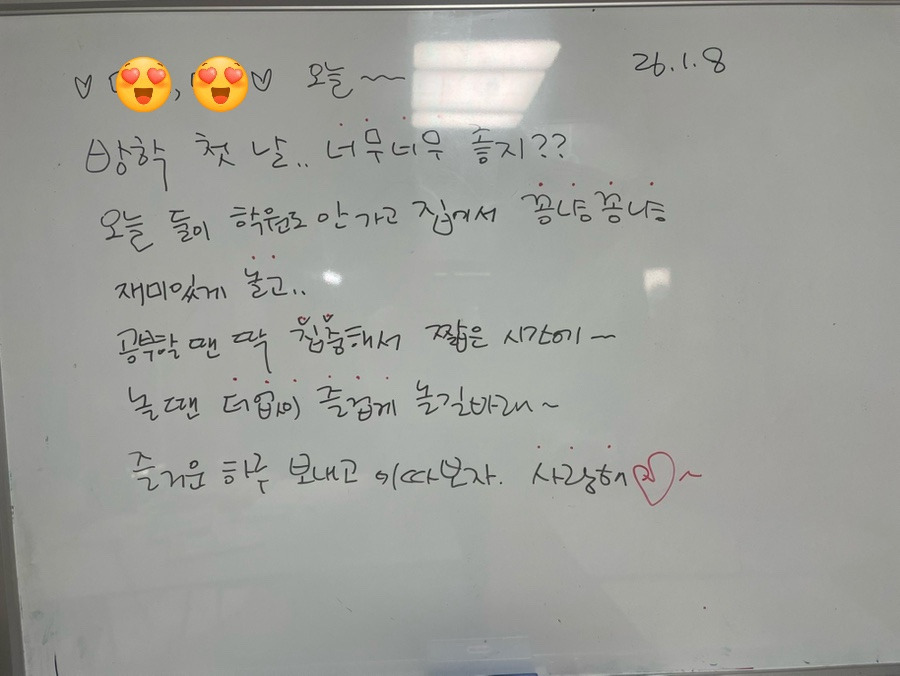 ♡ , ♡ 오늘~~ 26.1.8
방학 첫 날.. 너무너무 좋지??
오늘 둘이 학원도 안 가고 집에서 꽁냥꽁냥
재미있게 놀고..
공부할 땐 딱 집중해서 짧은 시간에~
놀 땐 더없이 즐겁게 놀길바래~
즐거운 하루 보내고 이따보자. 사랑해♡~